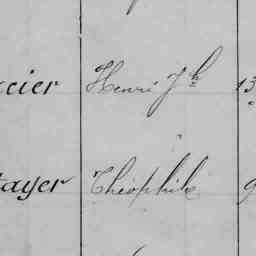 cier Henri Jh 13
ayer Théophile 9